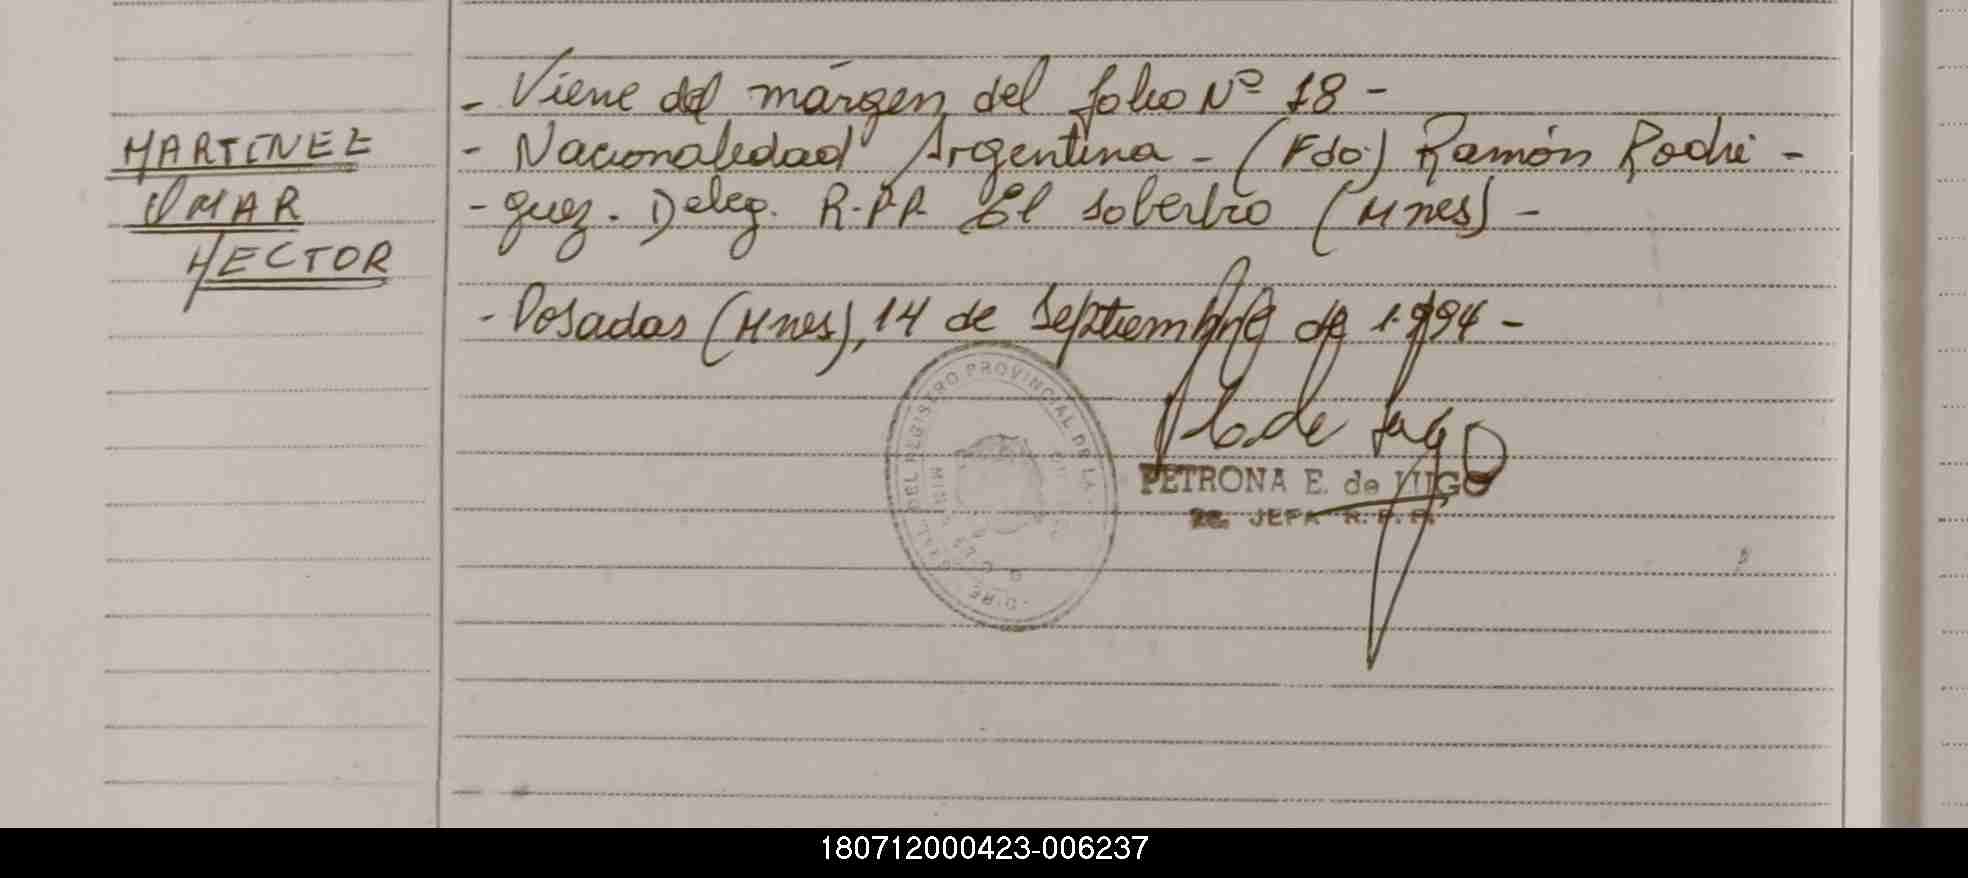 - Viene del márgen del folio Nº 18 -
MARTINEZ
- Nacionalidad Argentina - (Fdo.) Ramón Rodri -
OMAR
- guez. Deleg. R.P.P. El Soberbio (Mnes) -
HECTOR
- Posadas (Mnes), 14 de Septiembre de 1.994 -
DEL REGISTRO PROVINCIAL DE LA
PETRONA E. de LUGO
2a. JEFA R.P.P.
180712000423-006237